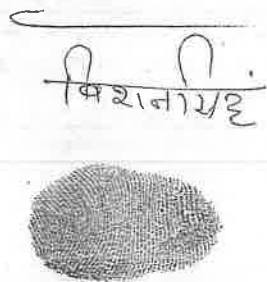 विशनसिहं